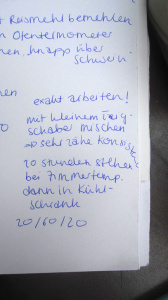 Rusmehl bemehlen
Ofentermometer
knapp über
exakt arbeiten!
mit kleinem Teig-
schaber mischen
→ sehr zähe Konsistenz
20 Stunden stehen
bei Zimmertemp.
dann in Kühl-
schrank
20/60/20